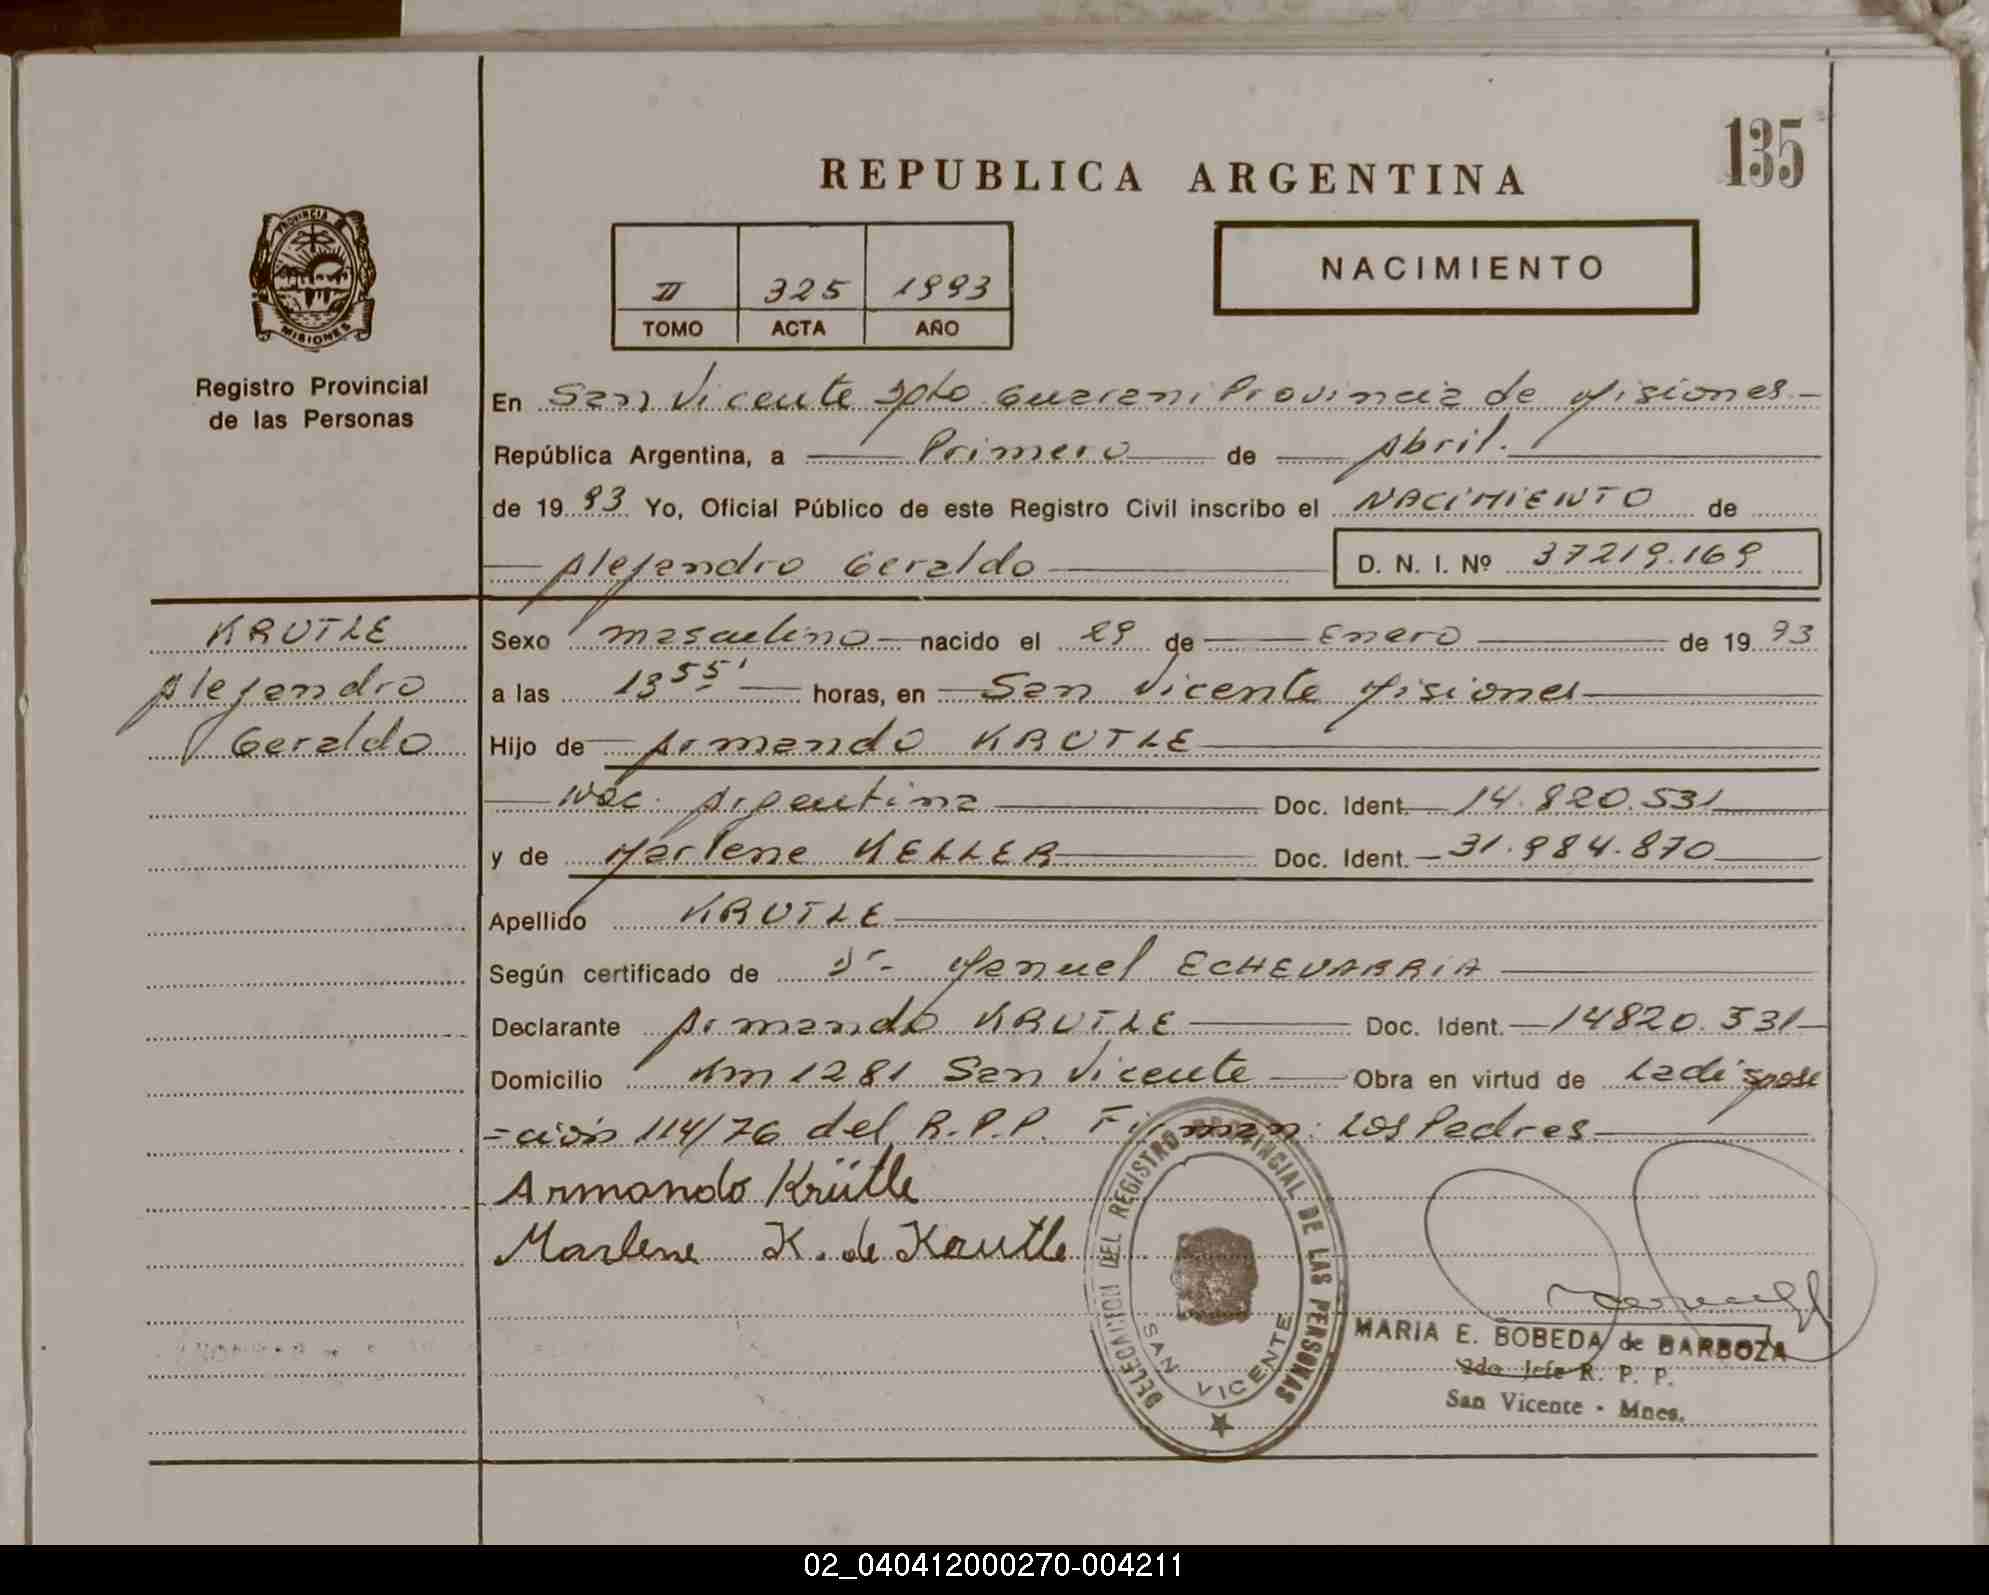 135
REPUBLICA ARGENTINA
NACIMIENTO
II 325 1993
TOMO ACTA AÑO
PROVINCIA DE
MISIONES
Registro Provincial
de las Personas
En San Vicente Dpto Guarani Provincia de Misiones
República Argentina, a Primero de Abril.
de 1993 Yo, Oficial Público de este Registro Civil inscribo el NACIMIENTO de
Alejandro Geraldo D. N. I. Nº 37219.169
KRUTLE
Alejandro
Geraldo
Sexo masculino nacido el 29 de Enero de 1993
a las 13 55' horas, en San Vicente Misiones
Hijo de Armando KRUTLE
Nac. Argentina Doc. Ident. 14.820.531
y de Marlene KELLER Doc. Ident. 31.984.870
Apellido KRUTLE
Según certificado de Dr. Manuel ECHEVARRIA
Declarante Armando KRUTLE Doc. Ident. 14820.531
Domicilio Km 1281 San Vicente Obra en virtud de la disposi
=ción 114/76 del R.P.P. Firman: Los Padres
Armando Krütle
Marlene K. de Krutle
DELEGACION DEL REGISTRO PROVINCIAL DE LAS PERSONAS
SAN VICENTE
MARIA E. BOBEDA de BARBOZA
2do Jefe R. P. P.
San Vicente - Mnes.
02_040412000270-004211